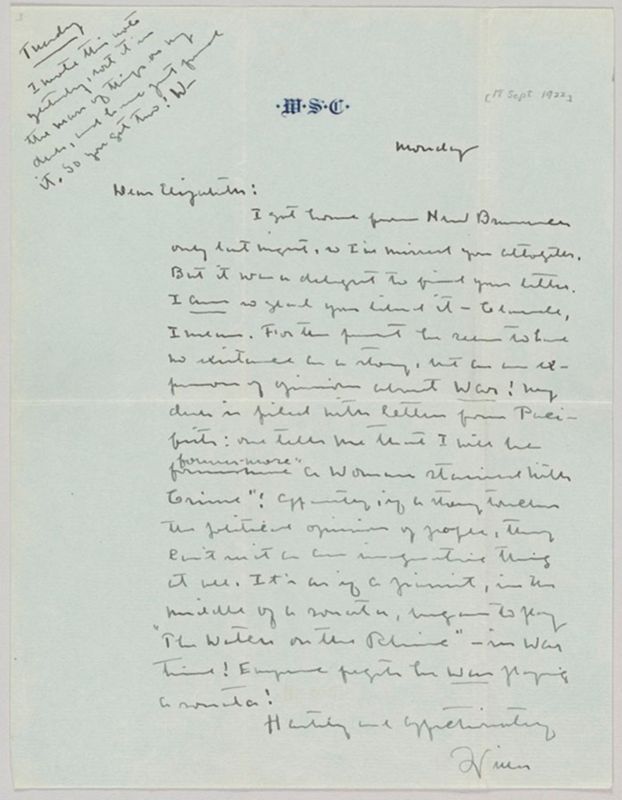 Tuesday
I wrote this note
yesterday, lost it in
the mass of things on my
desk, and have just found
it. So you get two! W—
[18 Sept 1922]
·W·S·C·
Monday
Dear Elizabeth:
I got home from New Brunswick
only last night, so I've missed you altogether.
But it was a delight to find your letter.
I am so glad you liked it — Claude,
I mean. For the present he seems to have
no existence as a story, but as an ex-
pression of opinion about War! My
desk is piled with letters from Paci-
fists: one tells me that I will be
forever-more"
a Woman stained with
Crime"! Apparently, if a story touches
the political opinions of people, they
can't see it as an imaginative thing
at all. It's as if a pianist, in the
middle of a sonata, began to play
"The Watch on the Rhine" — in War
time! Everyone forgets he was playing
a sonata!
Hastily and affectionately
Willa